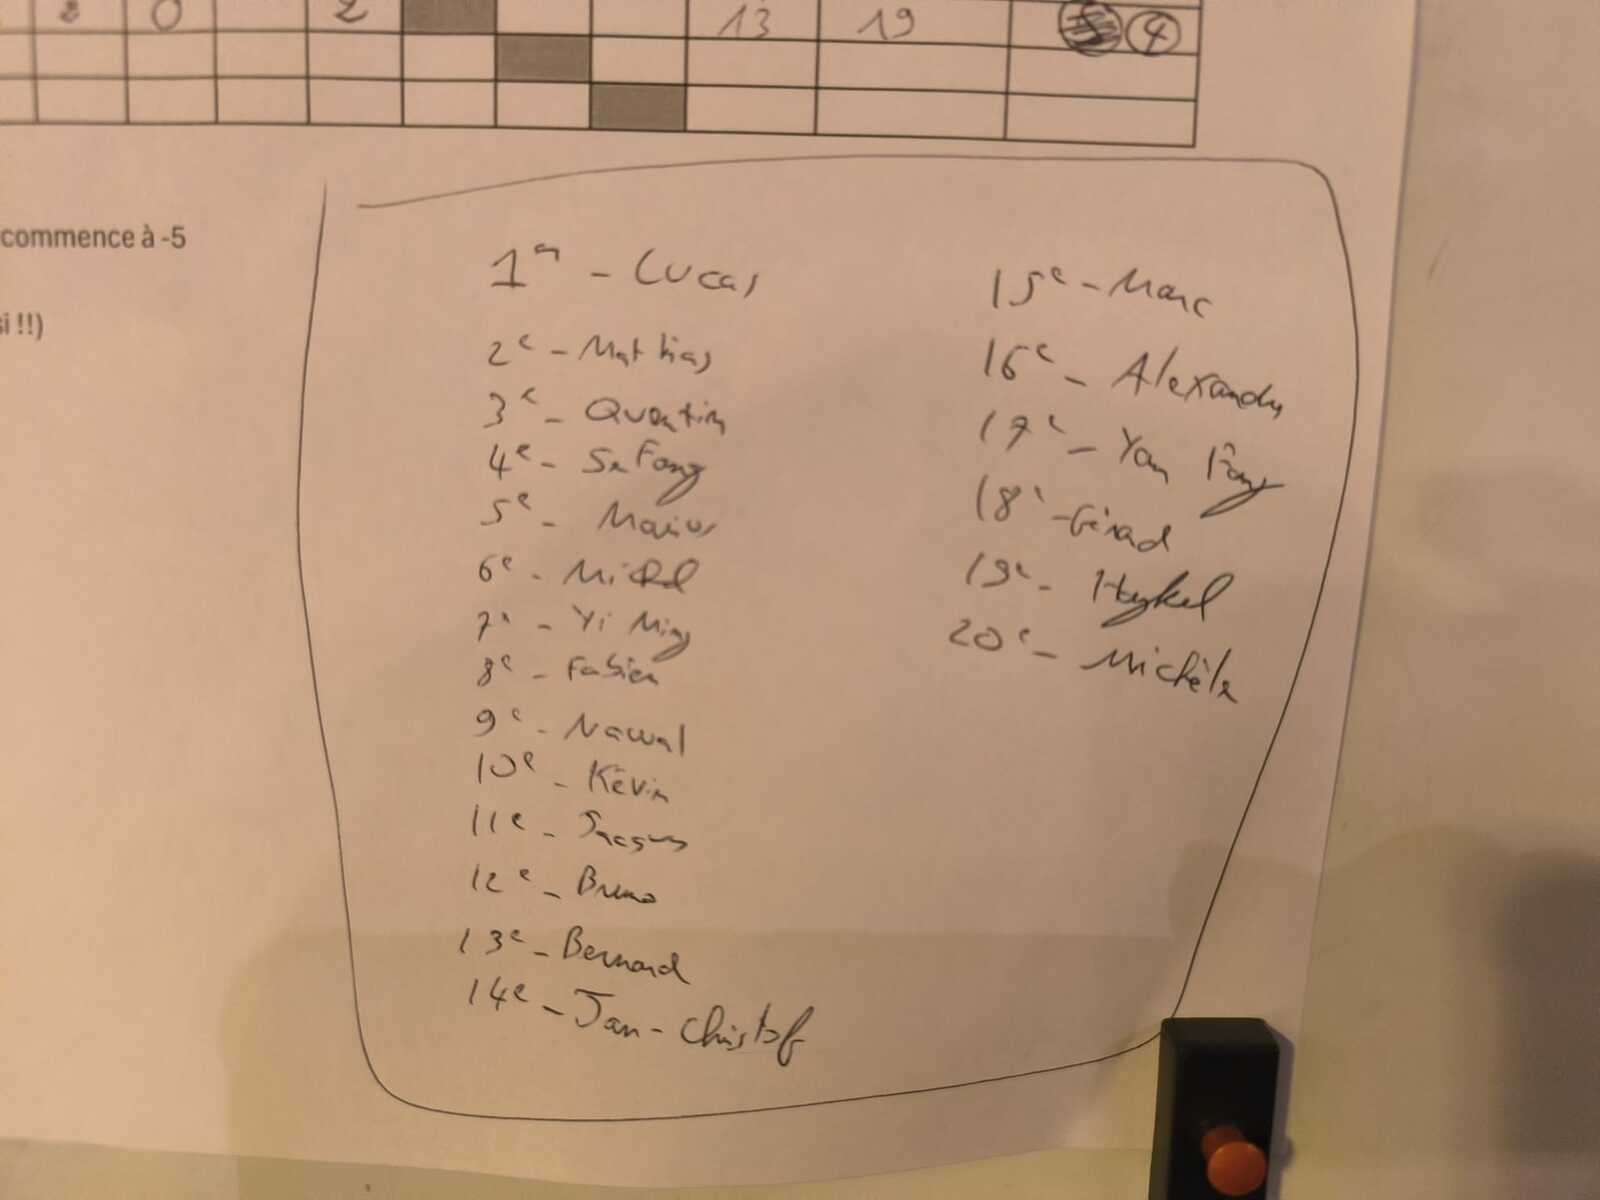 8 0 2 13 19 4
commence à -5
si !!)
1er - Lucas
2e - Mathias
3e - Quentin
4e - Se Fong
5e - Marius
6e - Michel
7e - Yi Ming
8e - Fabien
9e - Nawal
10e - Kévin
11e - Jacques
12e - Bruno
13e - Bernard
14e - Jan-Christof
15e - Marc
16e - Alexandre
17e - Yan Fong
18e - Gérard
19e - Haykel
20e - Michèle